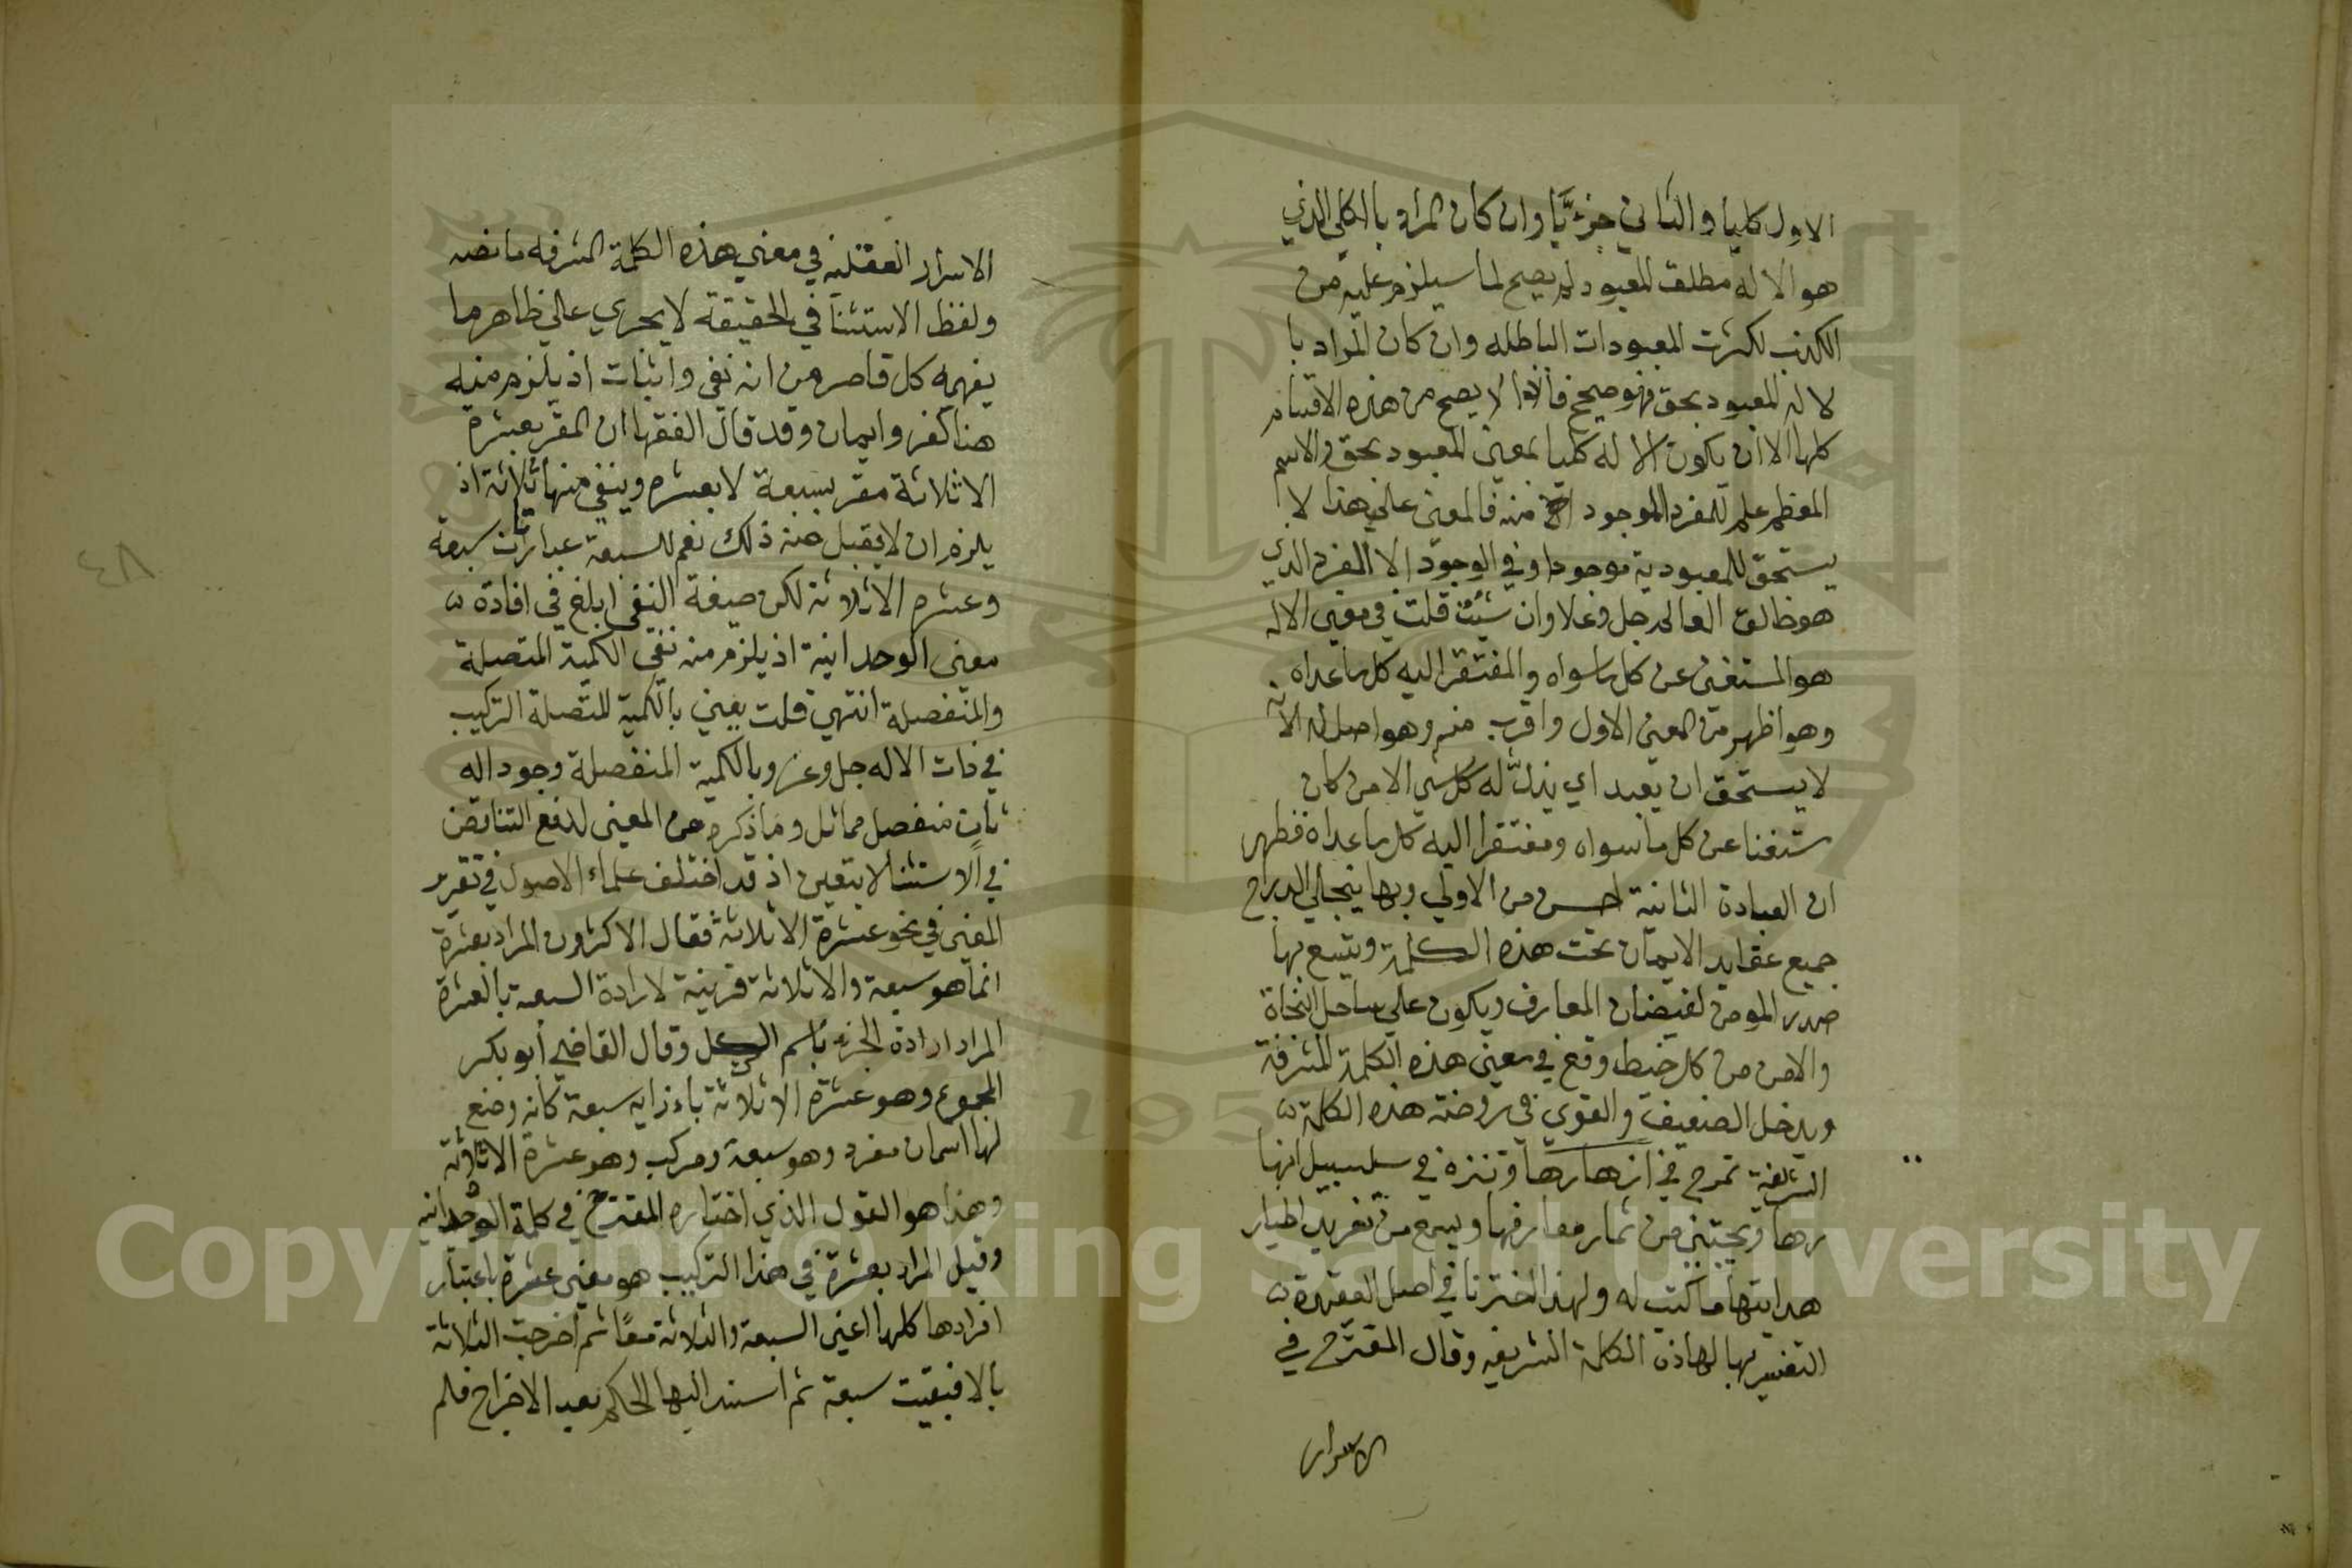 الاول كليا والثاني جزءيّا وان كان المراد بالكلي الذي
هو الا له مطلق المعبود لم يصح لما سيلزم عليه من
الكذب لكثرت المعبودات الباطله وان كان المراد با
لا له المعبود بحق فهو صحيح فاذا لا يصح من هذه الاقسام
كلها الا ان يكون الا له كليا بمعنى المعبود بحق والاسم
المعظم علم للمفرد الموجود منه فالمعنى على هذا لا
يستحق للمعبودية موجود او في الوجود الا الفرد الذي
هو خالق العالم جل وعلا وان شئت قلت في معنى الاله
هو المستغنى عن كل ما سواه والمفتقر اليه كل ما عداه
وهو اظهر من المعنى الاول واقرب منه وهو اصل له لانه
لا يستحق ان يعبد اي يذل له كل شي الا من كان
ستغنا عن كل ما سواه ومفتقرا اليه كل ما عداه فظهر
ان العبادة الثانية احسن من الاولي وبها ينجلي اندراج
جميع عقايد الايمان تحت هذه الكلمة ويتسع بها
صدر المومن لفيضان المعارف ويكون على ساحل النجاة
والامن من كل خبط وقع في معنى هذه الكلمة المشرفة
ويدخل الضعيف والقوي في روضة هذه الكلمة
الشريفة تمرح في ازهارها وتنزه في سلسبيل انها
رها ويجتني من ثمار معارفها ويسمع من تغريد اطيار
هدايتها ما كتب له ولهذا اخترنا في اصل العقيدة
التفسير بها لهاذه الكلمة الشريفه وقال المقترح في
الاسرار
الاسرار العقلية في معني هذه الكلمة المشرفه ما نصه
ولفظ الاستثنا في الحقيقة لا يجري علي ظاهر ما
يفهمه كل قاصر من انه نفي واثبات اذ يلزم منه
هنا كفر وايمان وقد قال الفقها ان المقر بعشرة
الا ثلاثة مقر بسبعة لا بعشره وينفي منها ثلاثة اذ
يلزم ان لا يقبل منه ذلك نعم للسبعة عبارتان سبعة
وعشره الا ثلاثة لكن صيغة النفي ابلغ في افادة
معنى الوحدانية اذ يلزم منه نفي الكمية المتصلة
والمنفصلة انتهي قلت يعني بالكمية المتصلة التركيب
في ذات الاله جل وعز وبالكمية المنفصلة وجود اله
ثان منفصل مماثل وما ذكره من المعنى لدفع التناقض
في الاستثنا لا يتعين اذ قد اختلف علماء الاصول في تقرير
المعنى في نحو عشرة الا ثلاثة فقال الاكثرون المراد بعشرة
انما هو سبعة والا ثلاثة قرينة لارادة السبعة بالعشرة
المراد ارادة الجزء باسم الكل وقال القاضي أبو بكر
المجموع وهو عشرة الا ثلاثة باءزايه سبعة كانه وضع
لها اسمان مفرد وهو سبعة ومركب وهو عشرة الا ثلاثة
وهذا هو القول الذي اختاره المقترح في كلمة الوحدانيه
وقيل المراد بعشرة في هذا التركيب هو معنى عشرة باعتبار
افرادها كلها اعني السبعة والثلاثة معًا ثم اخرجت الثلاثة
بالا فبقيت سبعة ثم اسند اليها الحكم بعد الاخراج فلم
٤٨
Copyright © King Saud University
195